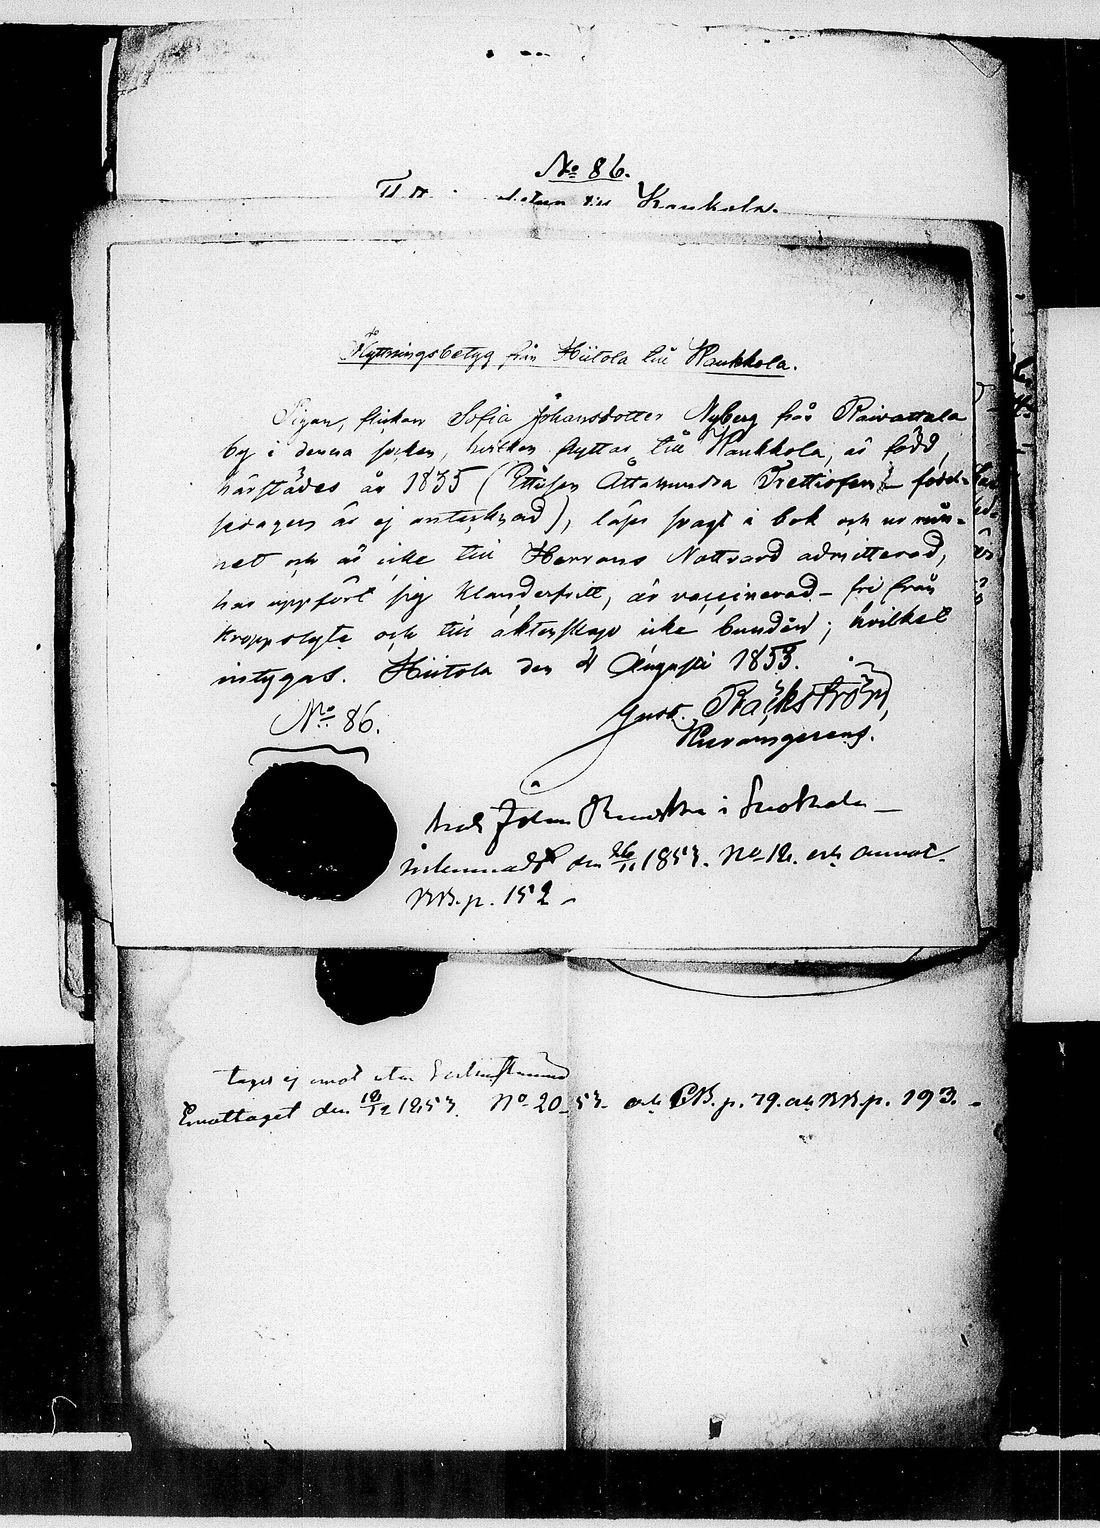 No 86.
Kaukola.
Flyttningsbetyg från Hiitola till Kaukkola.
Pigan, flickan Sofia Johansdotter Nyberg från Raivattala
by i denna socken, hvilken flyttar till Kaukkola, är född,
härstädes år 1835 (Ettusen Åttahundra Trettiofem - födel-
sedagen är ej antecknad), läser svagt i bok och ur min-
net och är icke till Herrans Nattvard admitterad,
har uppfört sig klanderfritt, är vaccinerad - fri från
kroppslyte och till äktenskap icke bunden; hvilket
intygas. Hiitola den 4 Augusti 1853.
No 86.
Gust. Bäckström,
Curam gerens.
Inlemnadt den 26/11 1853. No 12. och annot.
KB. p. 152 -
tages ej emot utan
Emottaget den 18/12 1853. No 20 53. och CB. p. 79. och KB. p. 193. -